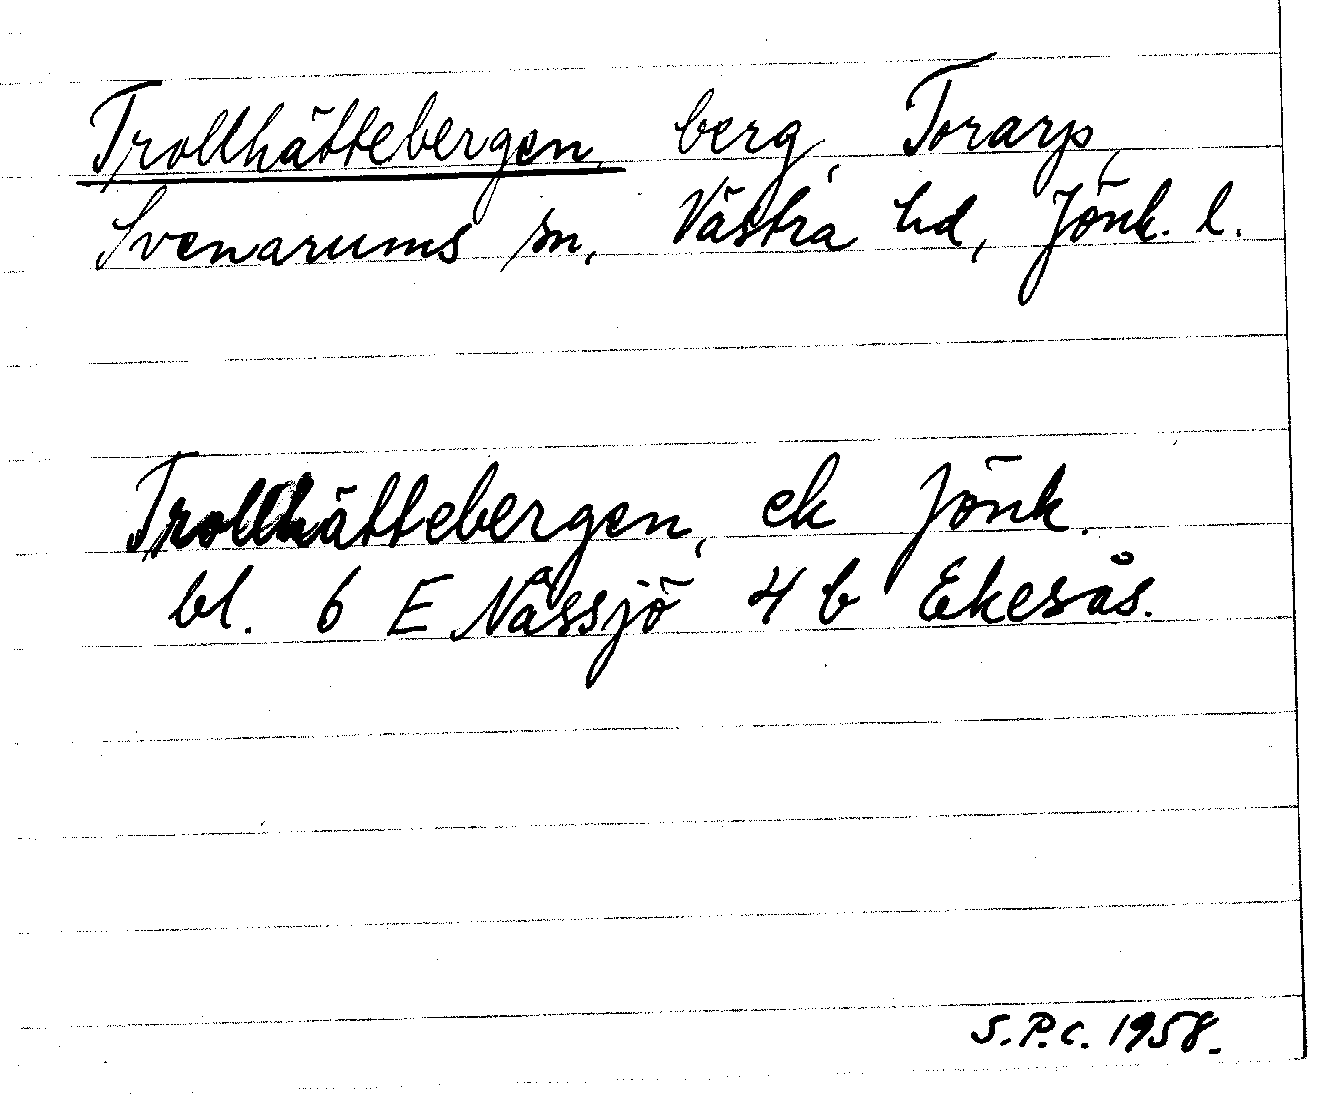 Trollhättebergen, berg, Torarp,
Svenarums sn, Västra hd, Jönk. l.
Trollhättebergen, ek Jönk.
bl. 6 E Nässjö 4 b Ekesås.
S.P.C. 1958.